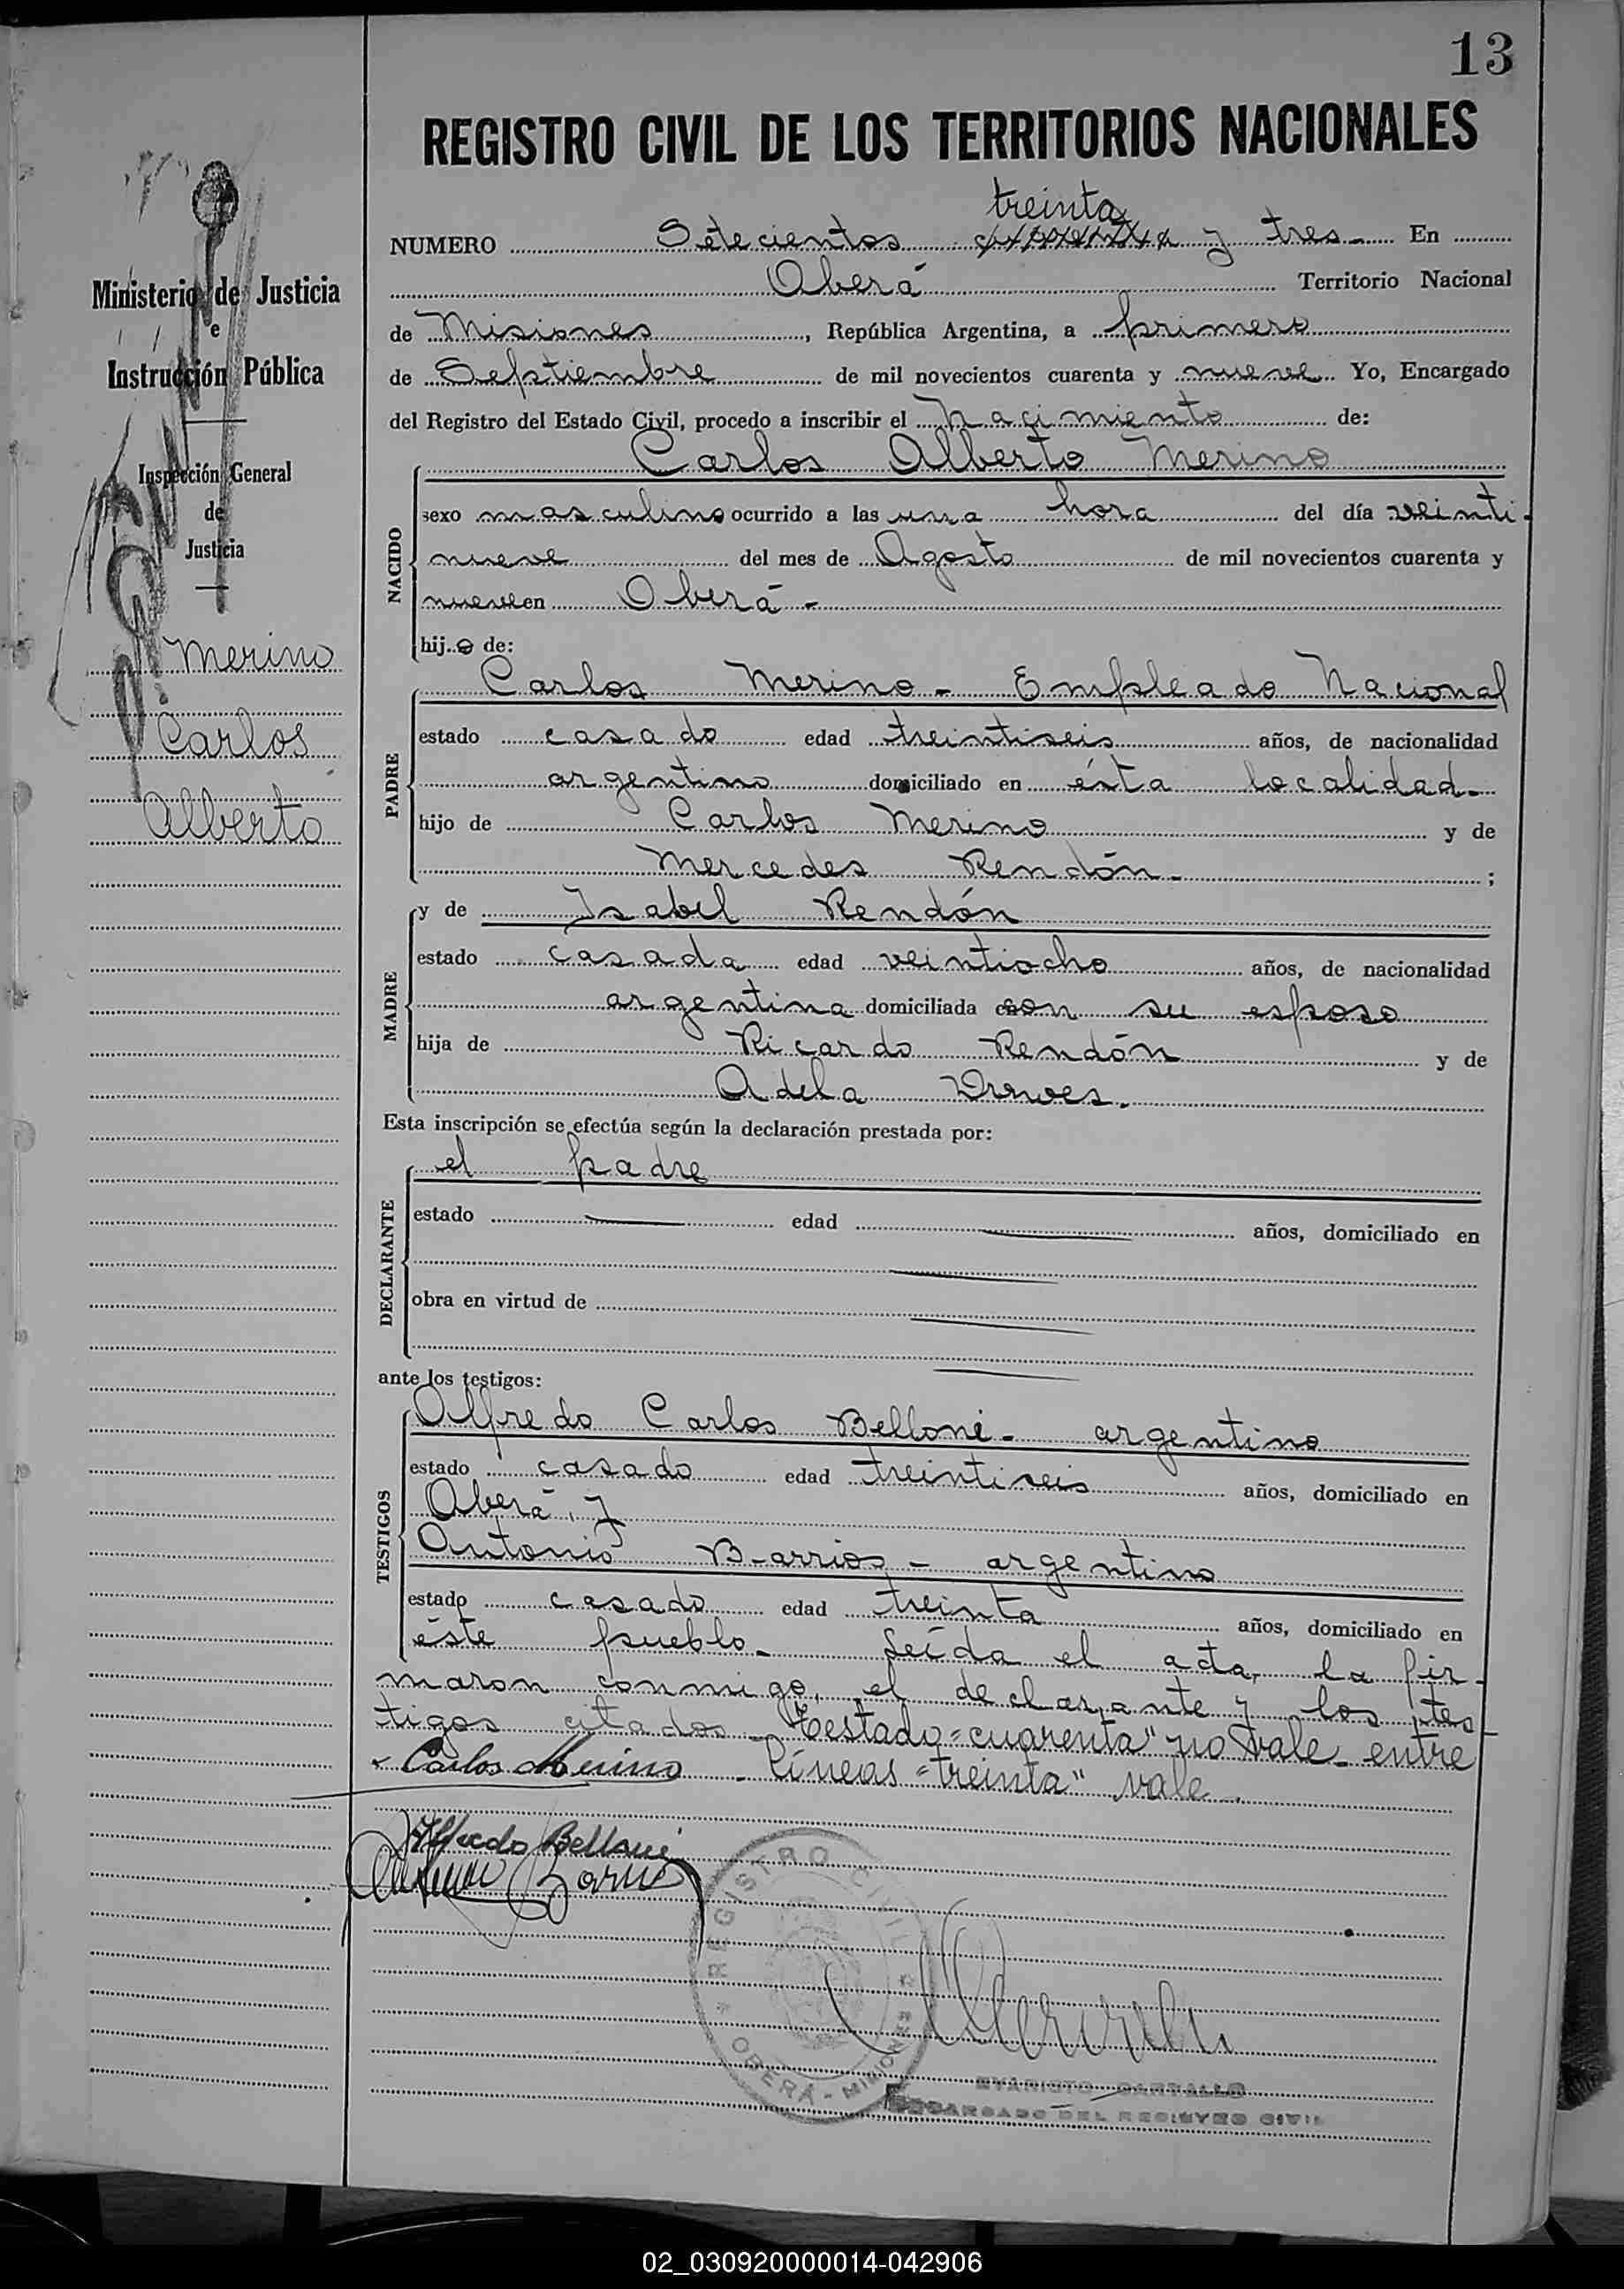 13
REGISTRO CIVIL DE LOS TERRITORIOS NACIONALES
treinta
NUMERO Setecientos cuarenta y tres - En
Oberá Territorio Nacional
de Misiones, República Argentina, a primero
de Septiembre de mil novecientos cuarenta y nueve Yo, Encargado
del Registro del Estado Civil, procedo a inscribir el nacimiento de:
Ministerio de Justicia
e
Instrucción Pública
Inspección General
de
Justicia
Merino
Carlos
Alberto
NACIDO
Carlos Alberto Merino
sexo masculino ocurrido a las una hora del día veinti-
nueve del mes de Agosto de mil novecientos cuarenta y
nueve en Oberá -
hijo de:
PADRE
Carlos Merino - Empleado Nacional
estado casado edad treintiseis años, de nacionalidad
argentino domiciliado en ésta localidad -
hijo de Carlos Merino y de
Mercedes Rendón - ;
MADRE
y de Isabel Rendón
estado casada edad veintiocho años, de nacionalidad
argentina domiciliada con su esposo
hija de Ricardo Rendón y de
Adela
Esta inscripción se efectúa según la declaración prestada por:
DECLARANTE
el padre
estado edad años, domiciliado en
obra en virtud de
ante los testigos:
TESTIGOS
Alfredo Carlos Belloni - argentino
estado casado edad treintiseis años, domiciliado en
Oberá, y
Antonio Barrios - argentino
estado casado edad treinta años, domiciliado en
éste pueblo - Leída el acta, la fir-
maron conmigo, el declarante y los tes-
tigos citados - Testado = "cuarenta" no vale - entre
Carlos Merino - líneas = "treinta" vale.
Alfredo Belloni
Antonio Barrios
REGISTRO CIVIL
OBERÁ - MISIONES
EVARISTO CARBALLO
ENCARGADO DEL REGISTRO CIVIL
02_030920000014-042906